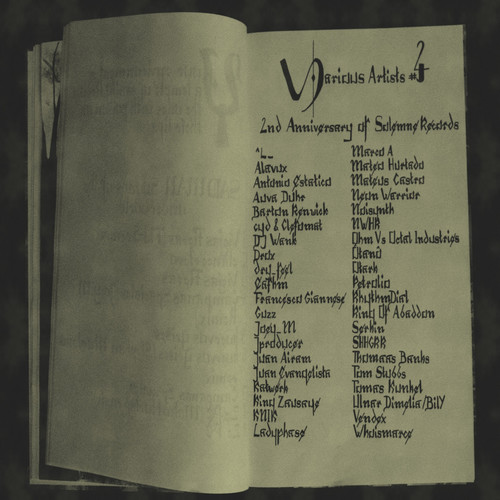 Various Artists #4
2nd Anniversary of Solemne Records
^L_
Alavux
Antonio Ostatico
Auva Duhr
Barton Renwick
cyd & Clofomat
DJ Wank
Drax
dry_feel
Francesco Giannose
Guzz
Joey_M
Jproducer
Juan Airam
Juan Evangelista
Katwerk
King Zausaye
KNTK
Ladyphase
Marco A
Mateo Hurtado
Mateus Castro
Neon Warrior
Noisynth
NWHR
Ohm Vs Octal Industries
Otark
Petrolio
RhythmDial
Ring Of Abaddon
Serkin
SHHGRR
Thomaas Banks
Tom Stubbs
Tomas Kunkel
Ulnar Dimelia/BilY
Vendex
Whoismarco